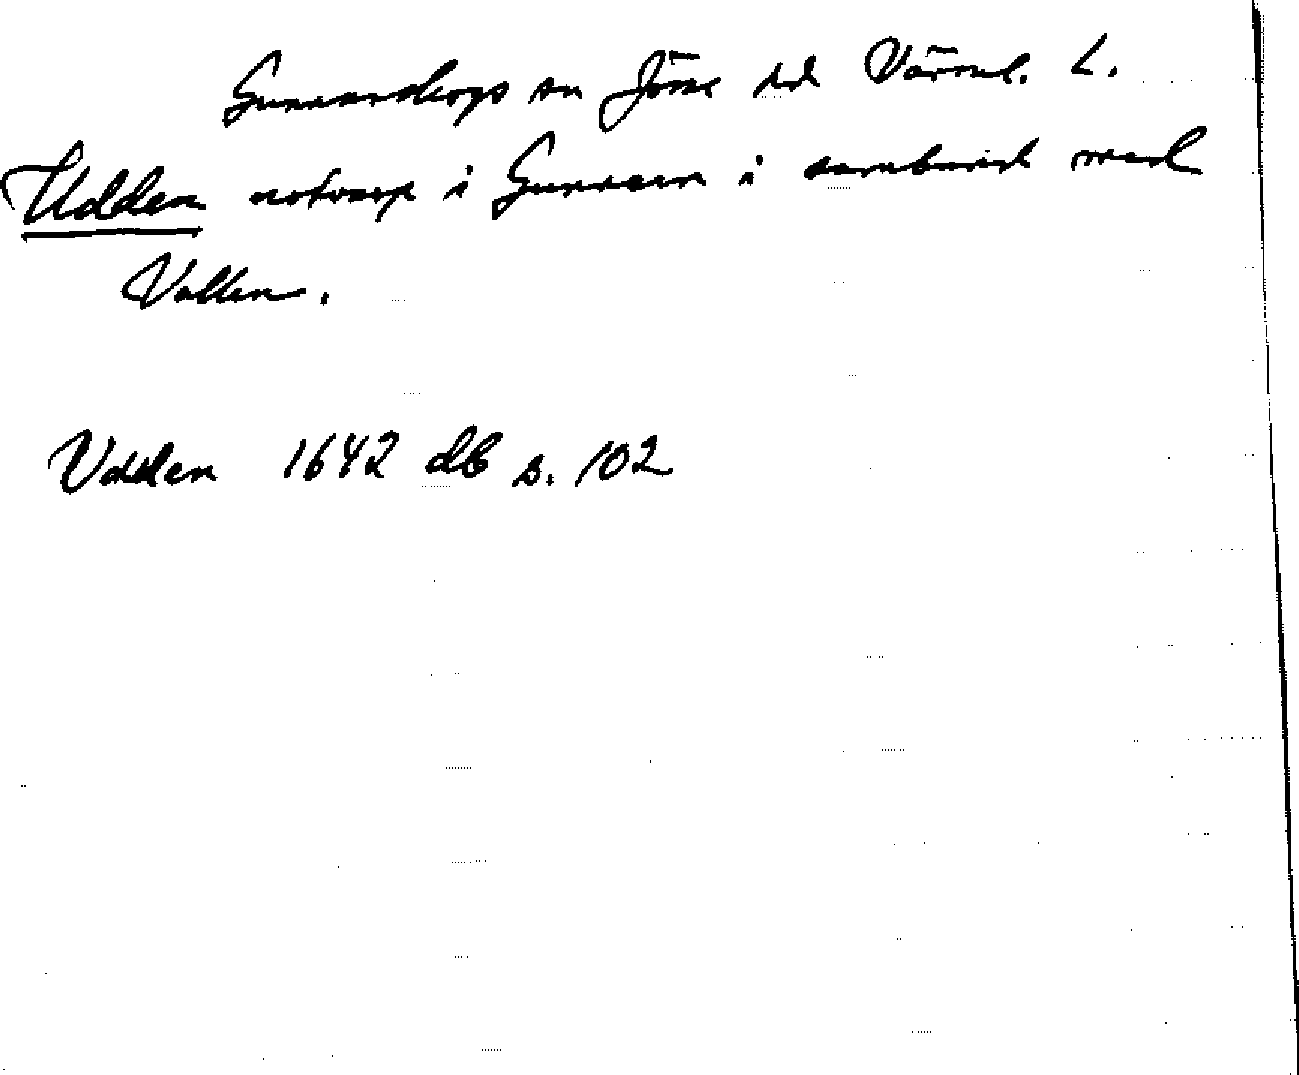 Gunnarskogs sn Jösse hd Värml. L.
Udden notvarp i Gunnern i sambruk med
Vallen.
Udden 1642 db s. 102